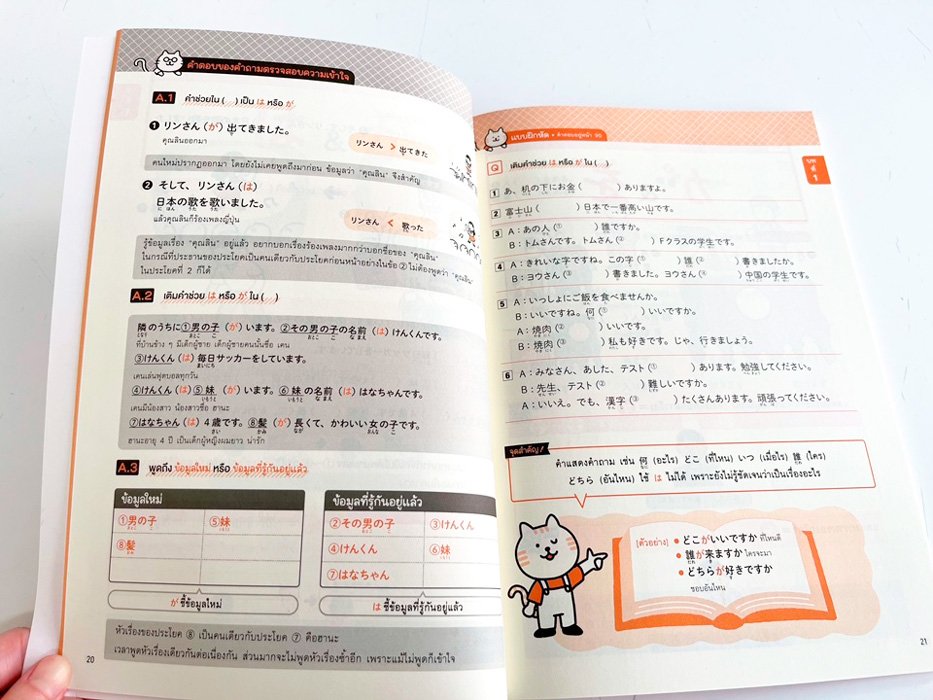 คำตอบของคำถามตรวจสอบความเข้าใจ
A.1 คำช่วยใน ( ) เป็น は หรือ が
❶ リンさん（が）出てきました。
คุณลินออกมา
リンさん > 出てきた
คนใหม่ปรากฏออกมา โดยยังไม่เคยพูดถึงมาก่อน ข้อมูลว่า "คุณลิน" จึงสำคัญ
❷ そして、リンさん（は）
日本の歌を歌いました。
แล้วคุณลินก็ร้องเพลงญี่ปุ่น
リンさん < 歌った
รู้ข้อมูลเรื่อง "คุณลิน" อยู่แล้ว อยากบอกเรื่องร้องเพลงมากกว่าบอกชื่อของ "คุณลิน"
ในกรณีที่ประธานของประโยคเป็นคนเดียวกับประโยคก่อนหน้าอย่างในข้อ ② ไม่ต้องพูดว่า "คุณลิน"
ในประโยคที่ 2 ก็ได้
A.2 เติมคำช่วย は หรือ が ใน ( )
隣のうちに①男の子（が）います。②その男の子の名前（は）けんくんです。
ที่บ้านข้าง ๆ มีเด็กผู้ชาย เด็กผู้ชายคนนั้นชื่อ เคน
③けんくん（は）毎日サッカーをしています。
เคนเล่นฟุตบอลทุกวัน
④けんくん（は）⑤妹（が）います。⑥妹の名前（は）はなちゃんです。
เคนมีน้องสาว น้องสาวชื่อ ฮานะ
⑦はなちゃん（は）4歳です。⑧髪（が）長くて、かわいい女の子です。
ฮานะอายุ 4 ปี เป็นเด็กผู้หญิงผมยาว น่ารัก
A.3 พูดถึง ข้อมูลใหม่ หรือ ข้อมูลที่รู้กันอยู่แล้ว
ข้อมูลใหม่
①男の子 ⑤妹
⑧髪
が ชี้ข้อมูลใหม่
ข้อมูลที่รู้กันอยู่แล้ว
②その男の子 ③けんくん
④けんくん ⑥妹
⑦はなちゃん
は ชี้ข้อมูลที่รู้กันอยู่แล้ว
หัวเรื่องของประโยค ⑧ เป็นคนเดียวกับประโยค ⑦ คือฮานะ
เวลาพูดหัวเรื่องเดียวกันต่อเนื่องกัน ส่วนมากจะไม่พูดหัวเรื่องซ้ำอีก เพราะแม้ไม่พูดก็เข้าใจ
20
แบบฝึกหัด • คำตอบอยู่หน้า 90
บทที่ 1
Q เติมคำช่วย は หรือ が ใน ( )
1 あ、机の下にお金（ ）ありますよ。
2 富士山（ ）日本で一番高い山です。
3 A：あの人（① ）誰ですか。
B：トムさんです。トムさん（② ）Fクラスの学生です。
4 A：きれいな字ですね。この字（① ）誰（② ）書きましたか。
B：ヨウさん（③ ）書きました。ヨウさん（④ ）中国の学生です。
5 A：いっしょにご飯を食べませんか。
B：いいですね。何（① ）いいですか。
A：焼肉（② ）いいです。
B：焼肉（③ ）私も好きです。じゃ、行きましょう。
6 A：みなさん、あした、テスト（① ）あります。勉強してください。
B：先生、テスト（② ）難しいですか。
A：いいえ。でも、漢字（③ ）たくさんあります。頑張ってください。
จุดสำคัญ!
คำแสดงคำถาม เช่น 何 (อะไร) どこ (ที่ไหน) いつ (เมื่อไร) 誰 (ใคร)
どちら (อันไหน) ใช้ は ไม่ได้ เพราะยังไม่รู้ชัดเจนว่าเป็นเรื่องอะไร
[ตัวอย่าง] ● どこがいいですか ที่ไหนดี
● 誰が来ますか ใครจะมา
● どちらが好きですか
ชอบอันไหน
21